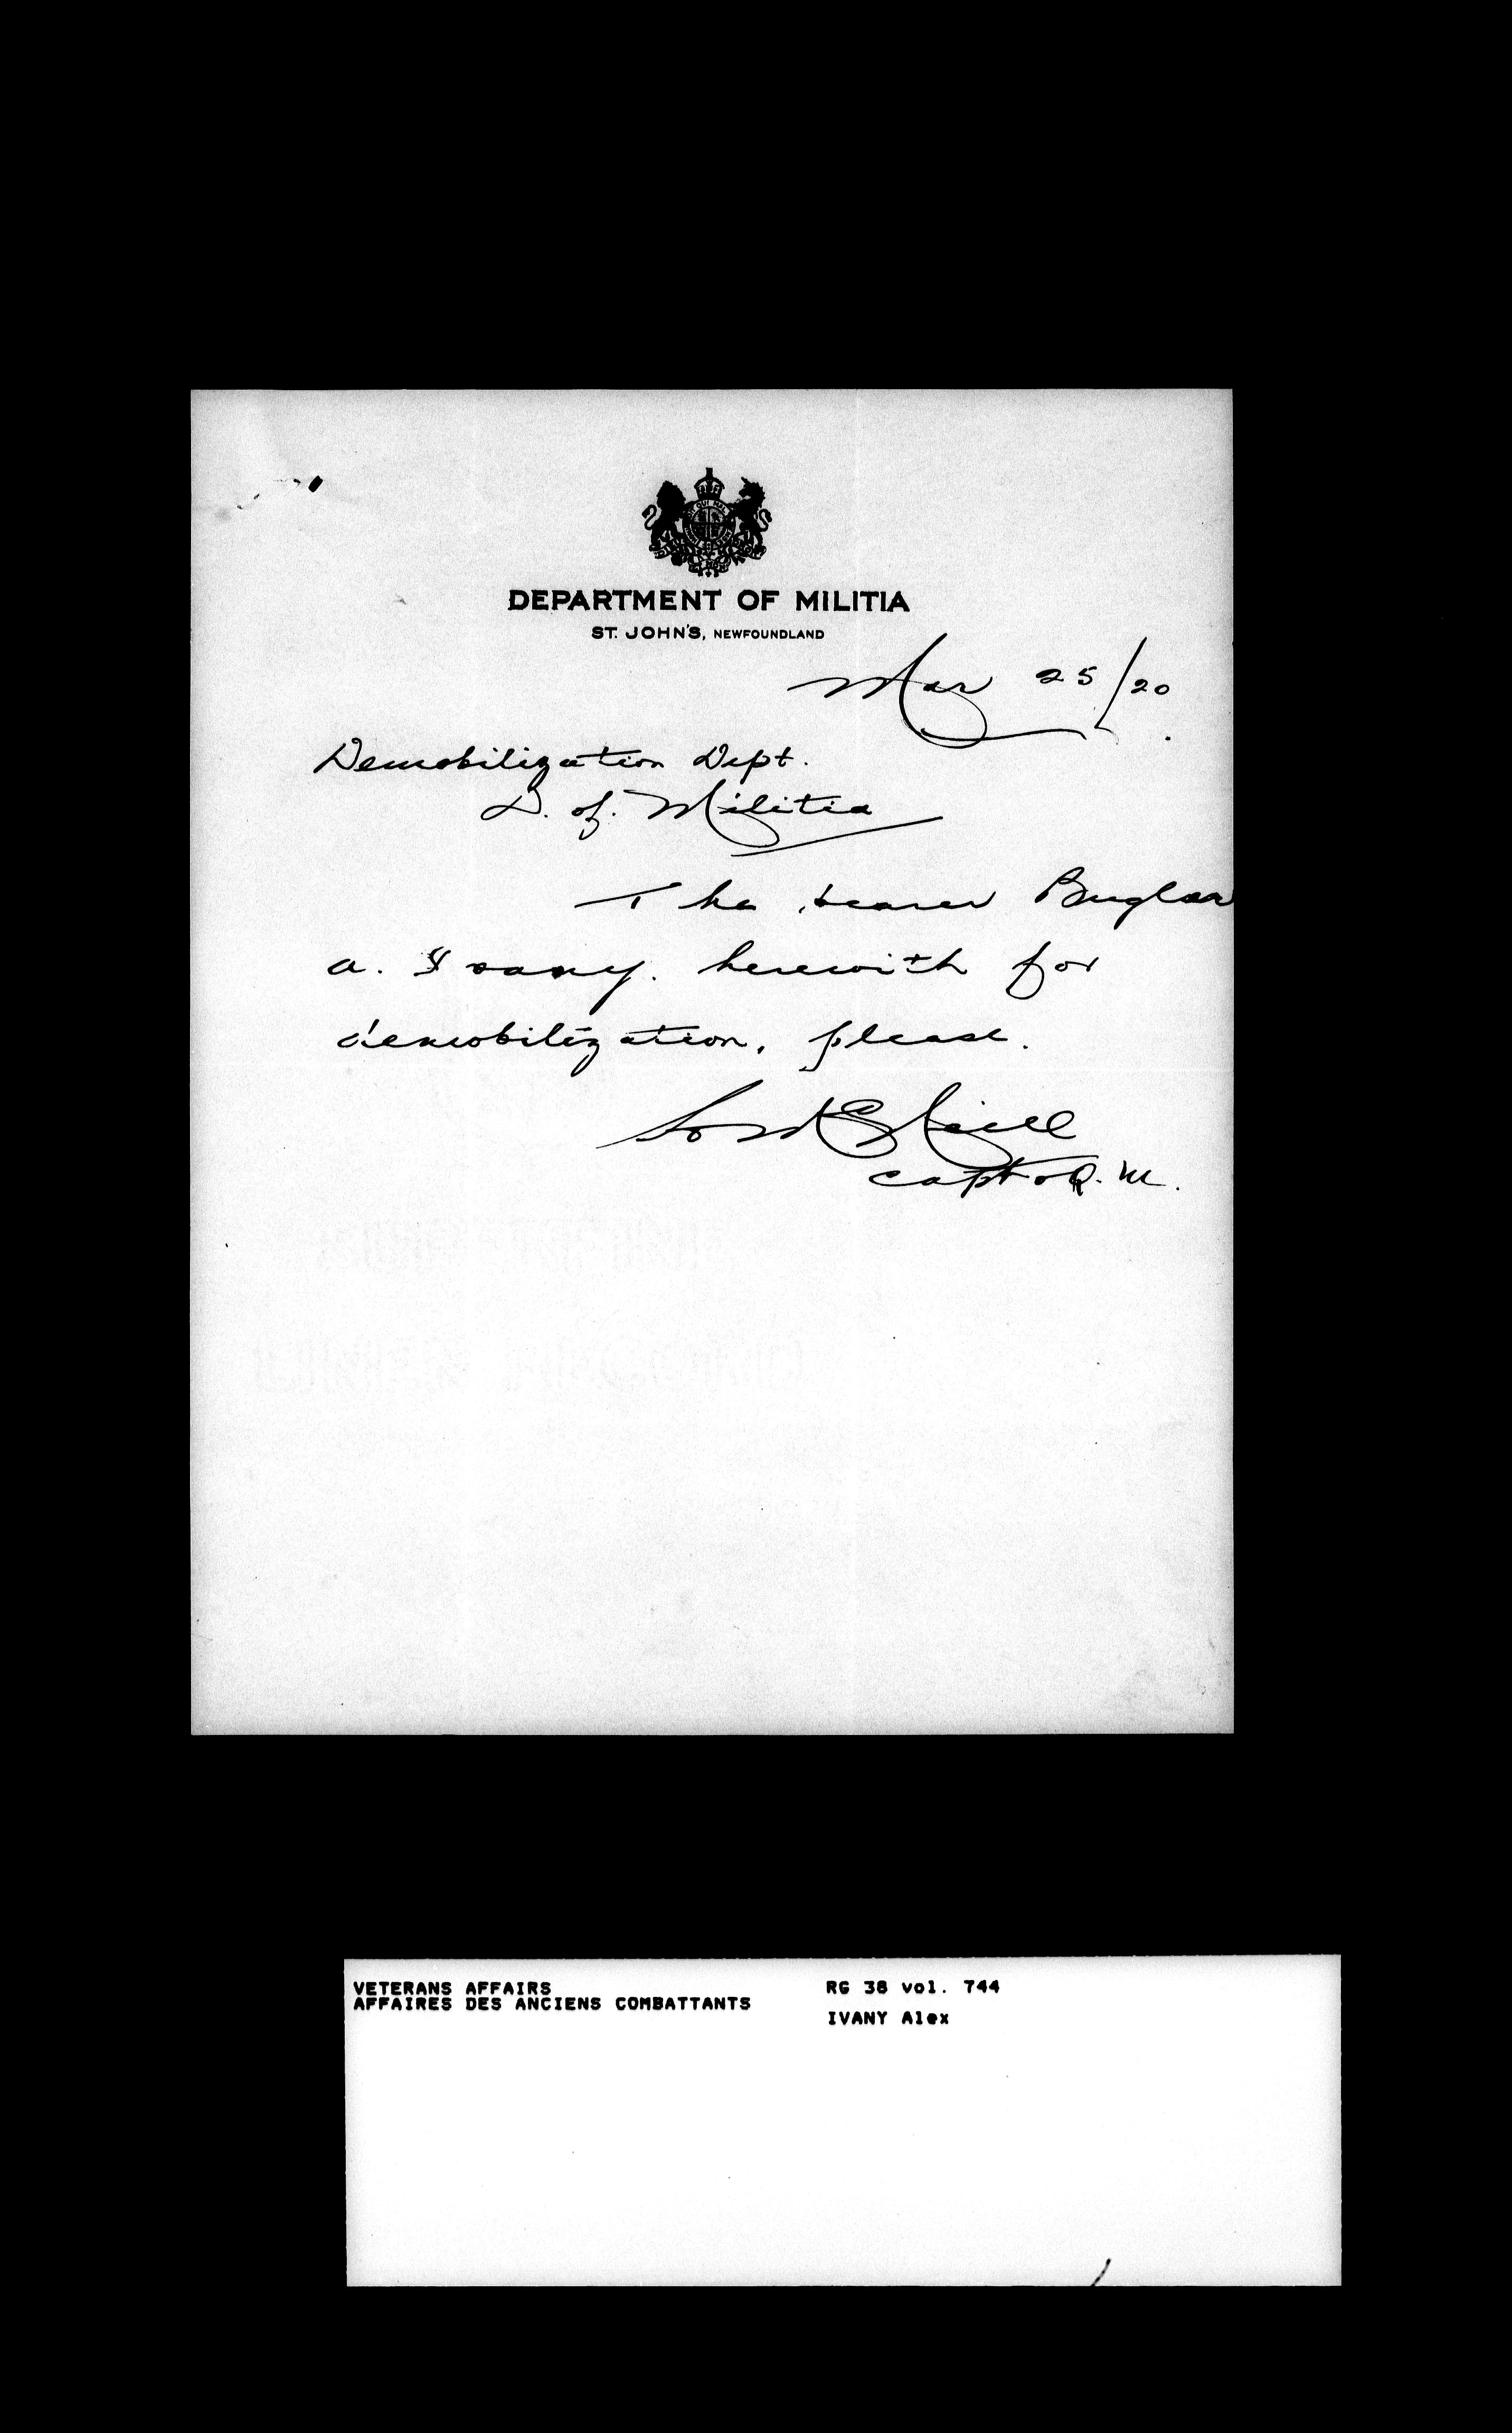 DEPARTMENT OF MILITIA
ST. JOHN'S, NEWFOUNDLAND
Mar 25/20.
Demobilization Dept.
D. of. Militia
The bearer Bugler
A. Ivany. herewith for
demobilization, please.
Capt & Q. M.
VETERANS AFFAIRS
AFFAIRES DES ANCIENS COMBATTANTS
RG 38 vol. 744
IVANY Alex